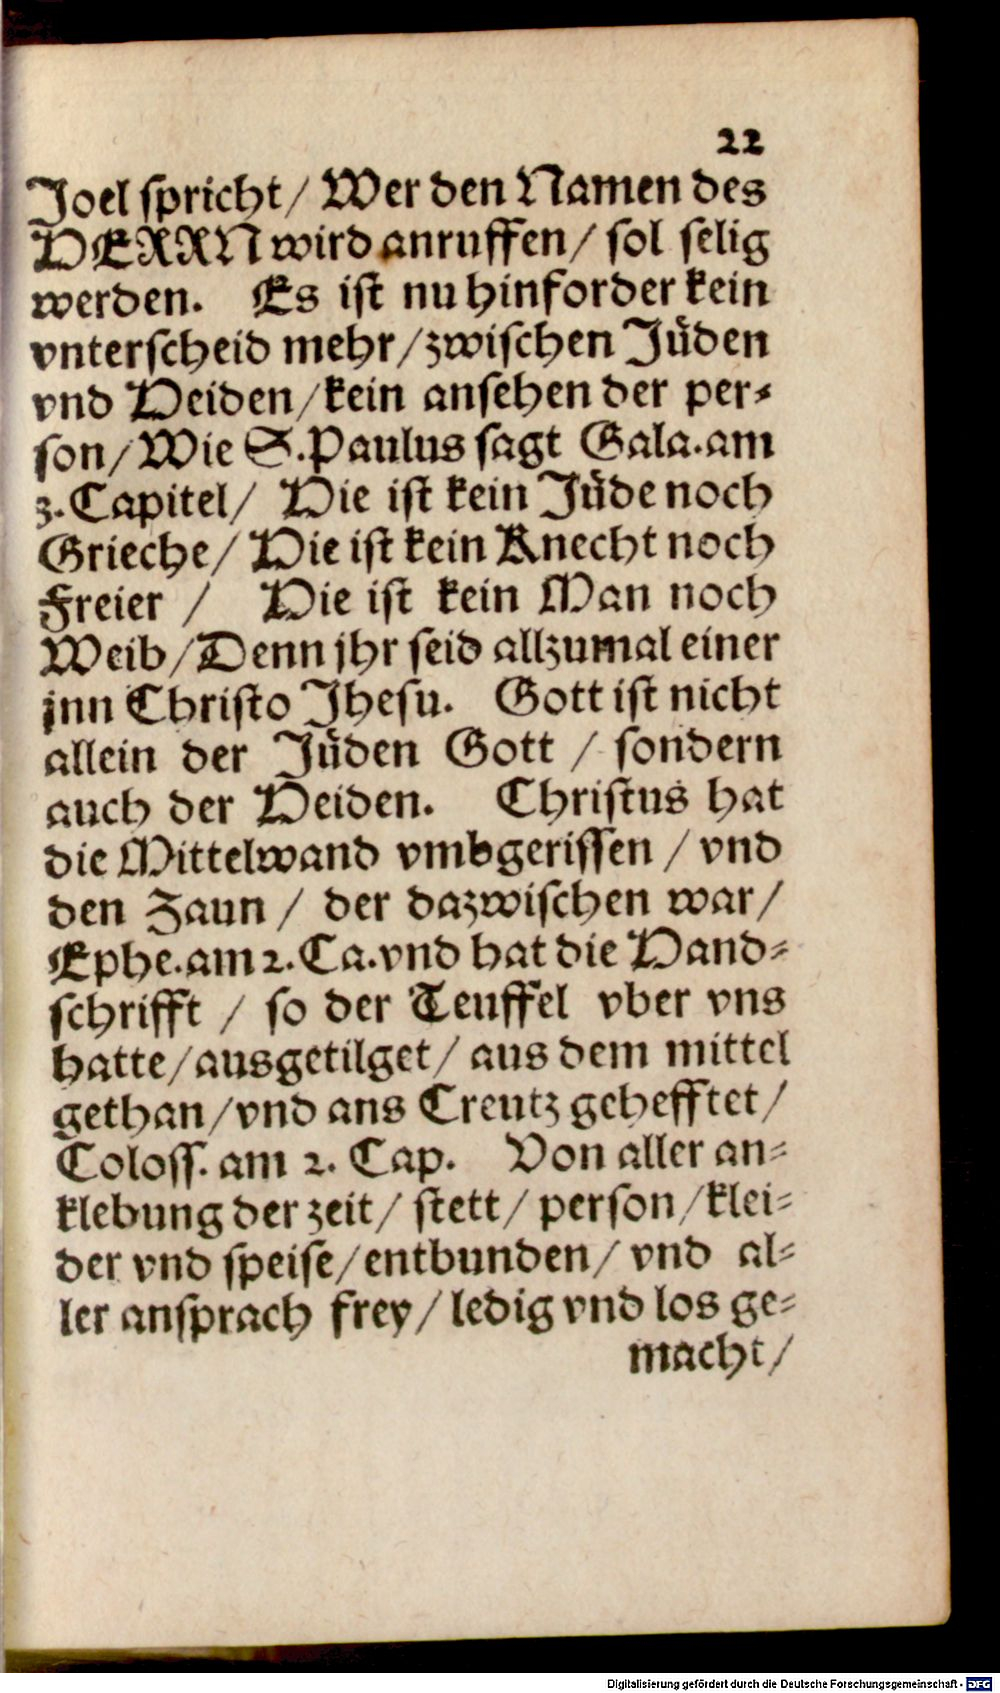 22
Joel spricht/ Wer den Namen des
HERRN wird anruffen/ sol selig
werden. Es ist nu hinforder kein
vnterscheid mehr/zwischen Jüden
vnd Heiden/kein ansehen der per-
son/Wie S.Paulus sagt Gala.am
3.Capitel/ Hie ist kein Jüde noch
Grieche/ Hie ist kein Knecht noch
Freier / Hie ist kein Man noch
Weib/Denn jhr seid allzumal einer
jnn Christo Jhesu. Gott ist nicht
allein der Jüden Gott / sondern
auch der Heiden. Christus hat
die Mittelwand vmbgerissen / vnd
den Zaun / der dazwischen war/
Ephe.am 2.Ca.vnd hat die Hand-
schrifft / so der Teuffel vber vns
hatte/ausgetilget/ aus dem mittel
gethan/vnd ans Creutz gehefftet/
Coloss. am 2. Cap. Von aller an-
klebung der zeit/ stett/ person/klei-
der vnd speise/entbunden/ vnd al-
ler ansprach frey/ ledig vnd los ge-
macht/
Digitalisierung gefördert durch die Deutsche Forschungsgemeinschaft - DFG